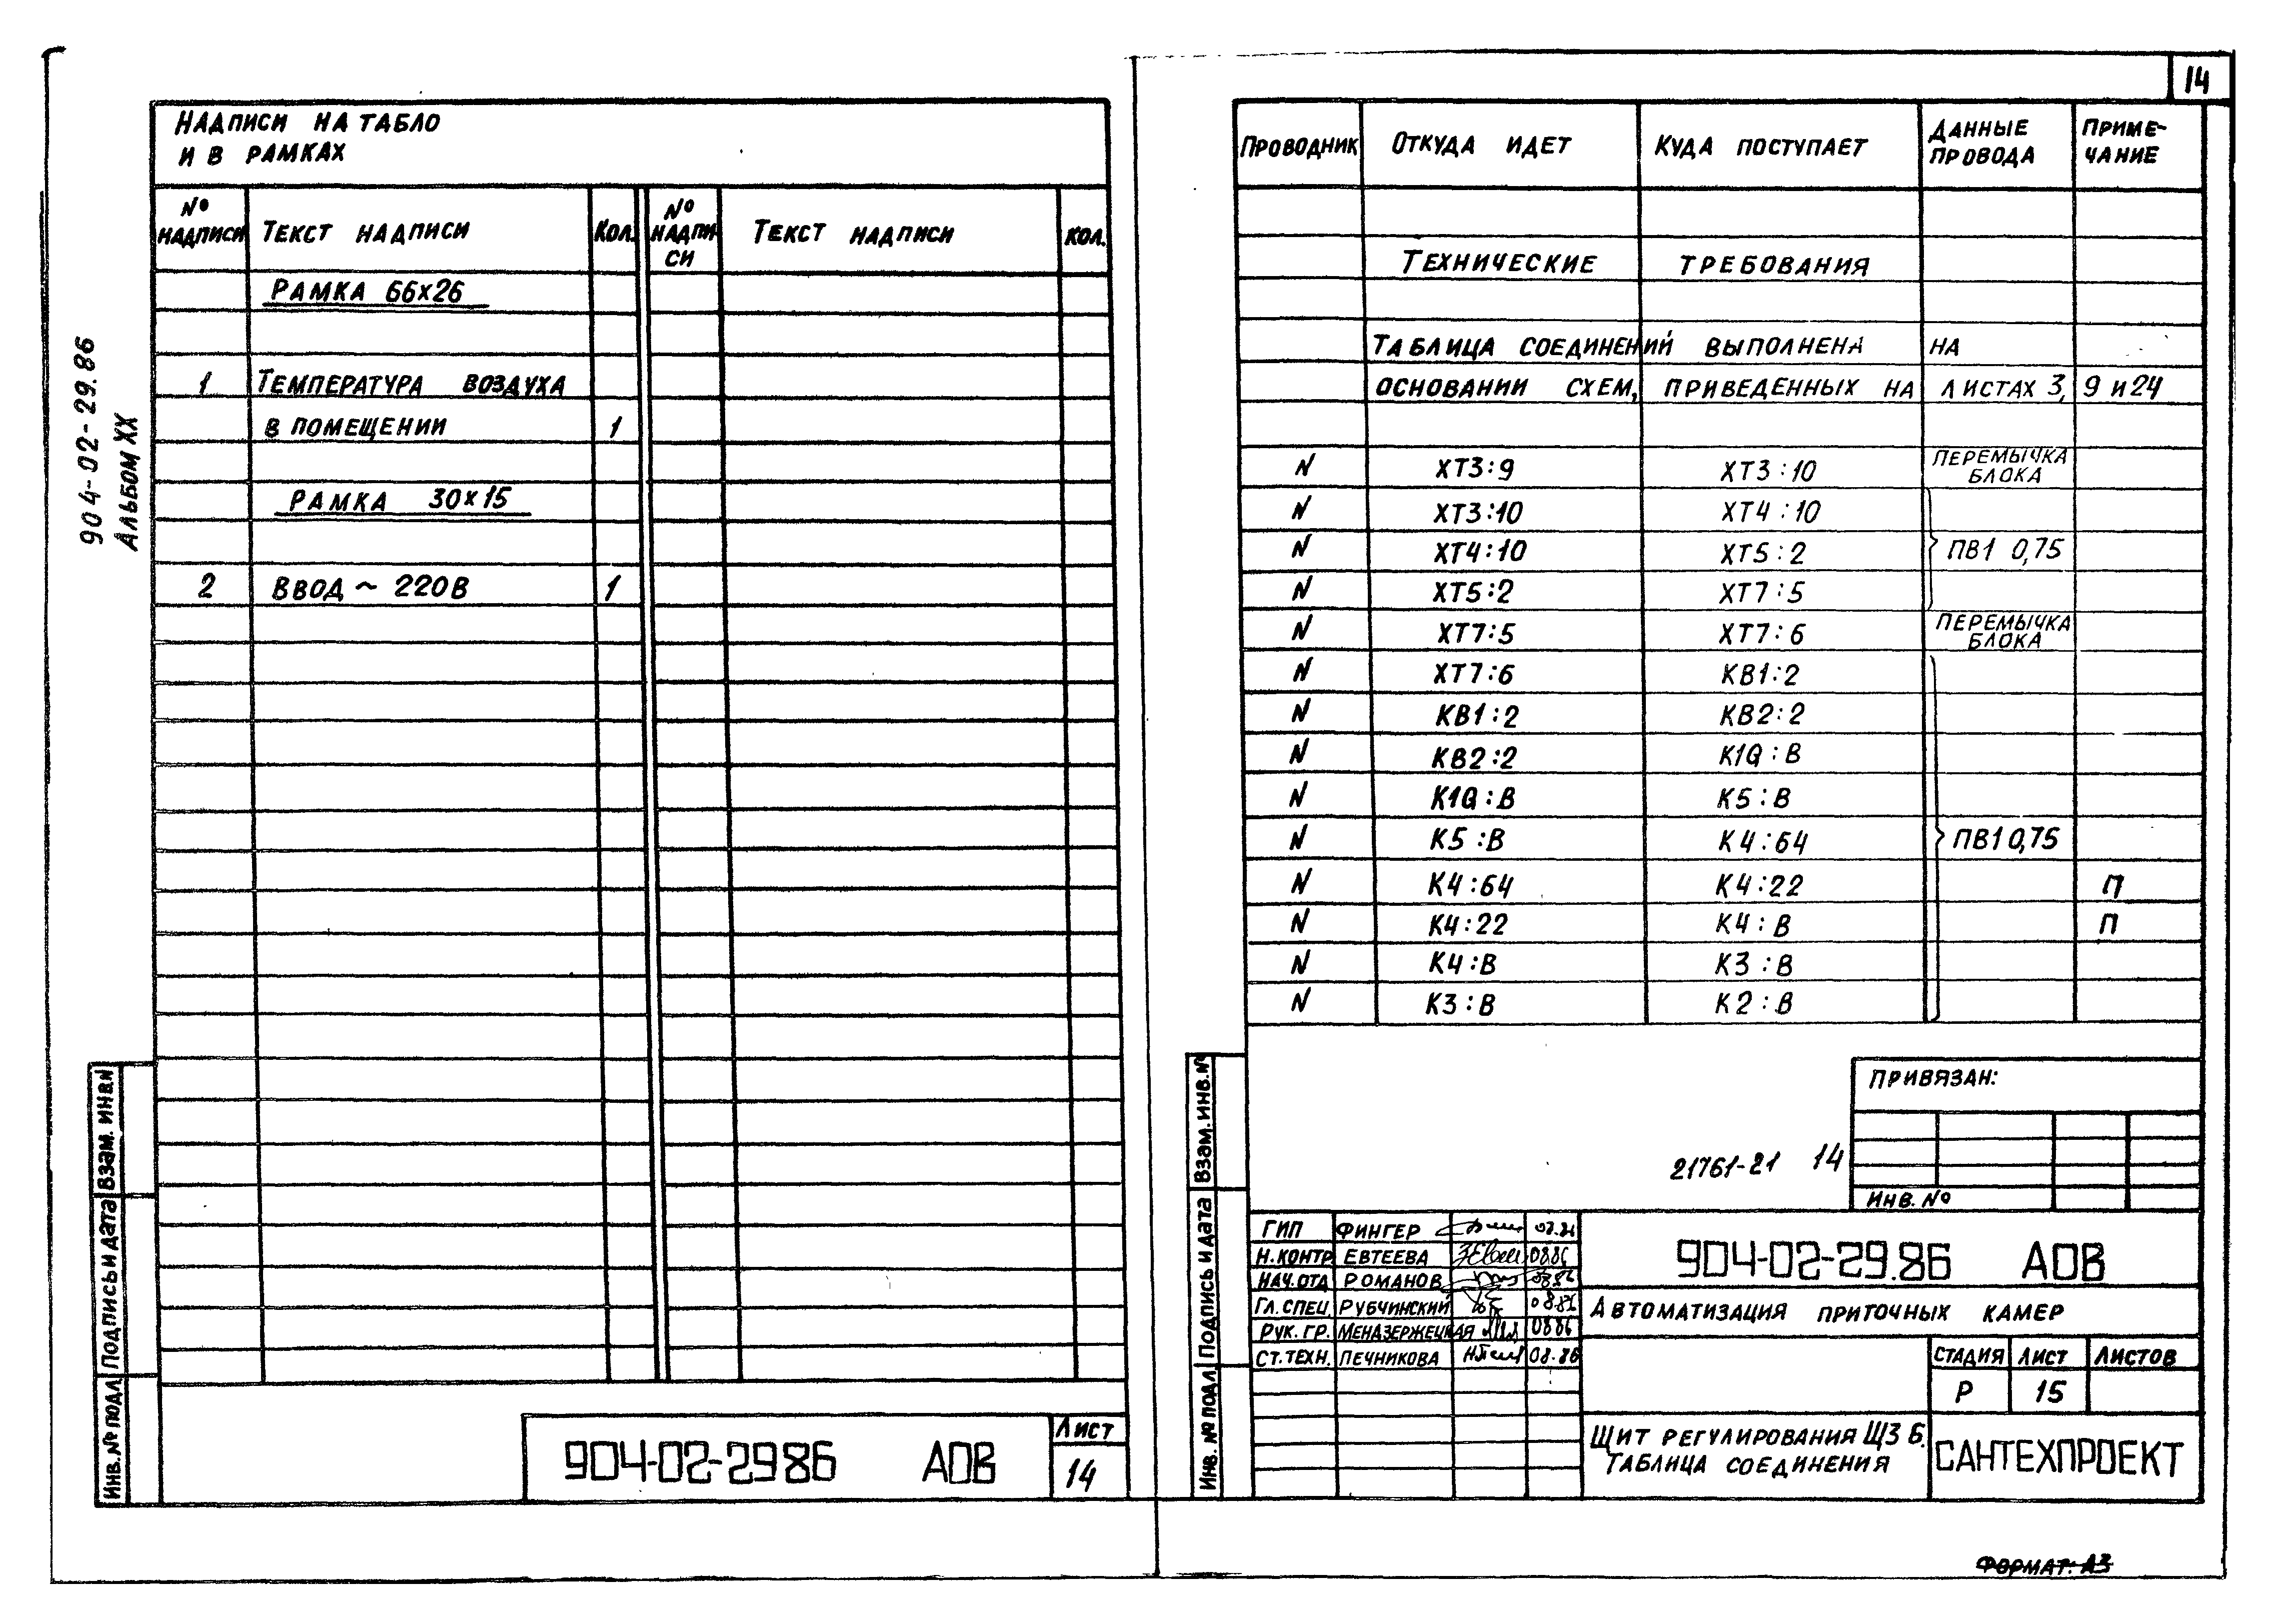 904-02-29.86
АЛЬБОМ XX
НАДПИСИ НА ТАБЛО
И В РАМКАХ
№ НАДПИСИ ТЕКСТ НАДПИСИ КОЛ. № НАДПИ-СИ ТЕКСТ НАДПИСИ КОЛ.
РАМКА 66х26
1 ТЕМПЕРАТУРА ВОЗДУХА
В ПОМЕЩЕНИИ 1
РАМКА 30х15
2 ВВОД ~ 220В 1
ВЗАМ. ИНВ.№
ПОДПИСЬ И ДАТА
ИНВ.№ ПОДЛ.
904-02-29.86 АОВ
ЛИСТ
14
14
ПРОВОДНИК ОТКУДА ИДЕТ КУДА ПОСТУПАЕТ ДАННЫЕ ПРОВОДА ПРИМЕ-ЧАНИЕ
ТЕХНИЧЕСКИЕ ТРЕБОВАНИЯ
ТАБЛИЦА СОЕДИНЕНИЙ ВЫПОЛНЕНА НА
ОСНОВАНИИ СХЕМ, ПРИВЕДЕННЫХ НА ЛИСТАХ 3, 9 И 24
N ХТ3:9 ХТ3:10 ПЕРЕМЫЧКА БЛОКА
N ХТ3:10 ХТ4:10
N ХТ4:10 ХТ5:2 ПВ1 0,75
N ХТ5:2 ХТ7:5
N ХТ7:5 ХТ7:6 ПЕРЕМЫЧКА БЛОКА
N ХТ7:6 КВ1:2
N КВ1:2 КВ2:2
N КВ2:2 К1Q:В
N К1Q:В К5:В
N К5:В К4:64 ПВ1 0,75
N К4:64 К4:22 П
N К4:22 К4:В П
N К4:В К3:В
N К3:В К2:В
ПРИВЯЗАН:
21761-21 14
ИНВ.№
ВЗАМ.ИНВ.№
ПОДПИСЬ И ДАТА
ИНВ. № ПОДЛ.
ГИП ФИНГЕР 08.86
Н.КОНТР. ЕВТЕЕВА 08.86
НАЧ.ОТД РОМАНОВ 08.86
ГЛ.СПЕЦ. РУБЧИНСКИЙ 08.86
РУК. ГР. МЕНДЗЕРЖЕЦКАЯ 08.86
СТ.ТЕХН. ПЕЧНИКОВА 08.86
904-02-29.86 АОВ
АВТОМАТИЗАЦИЯ ПРИТОЧНЫХ КАМЕР
СТАДИЯ ЛИСТ ЛИСТОВ
Р 15
ЩИТ РЕГУЛИРОВАНИЯ ЩЗ Б.
ТАБЛИЦА СОЕДИНЕНИЯ
САНТЕХПРОЕКТ
ФОРМАТ: А3